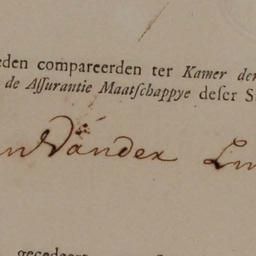 eden compareerden ter Kamer der
de Assurantie Maatschappye deser S
n Vander Lin